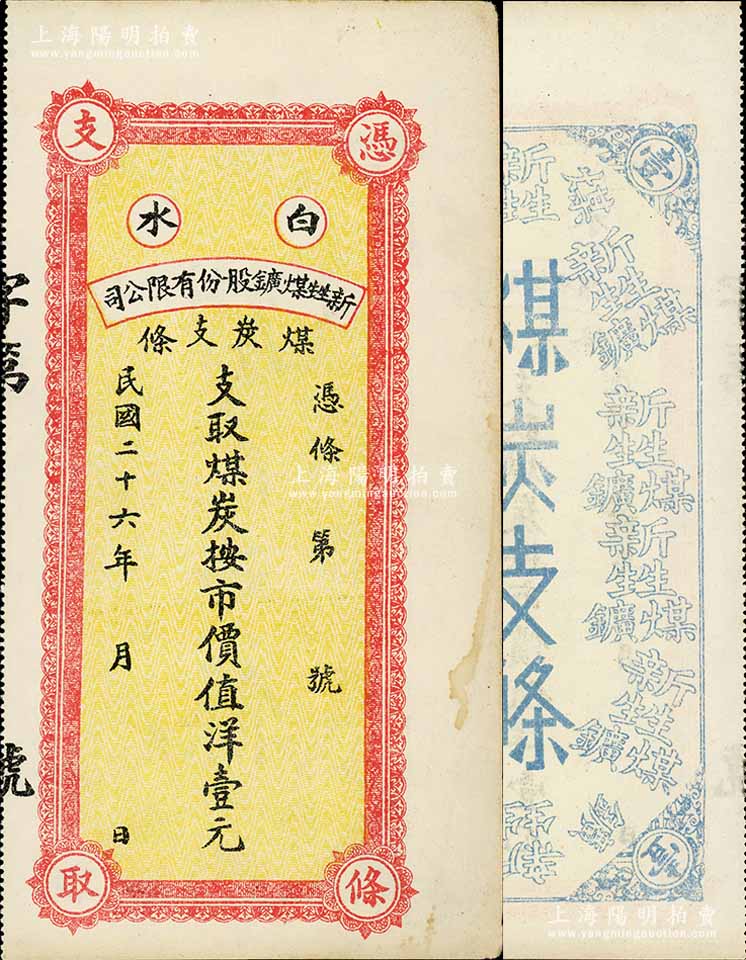 上海陽明拍賣
www.yangmingauction.com
憑條支取
白水
新生煤鑛股份有限公司
煤炭支條
憑條 第 號
支取煤炭按市價值洋壹元
民國二十六年 月 日
字第 號
上海陽明拍賣
www.yangmingauction.com
煤炭支條
新生煤鑛
新生煤鑛
新生煤鑛
新生煤鑛
上海陽明拍賣
www.yangmingauction.com